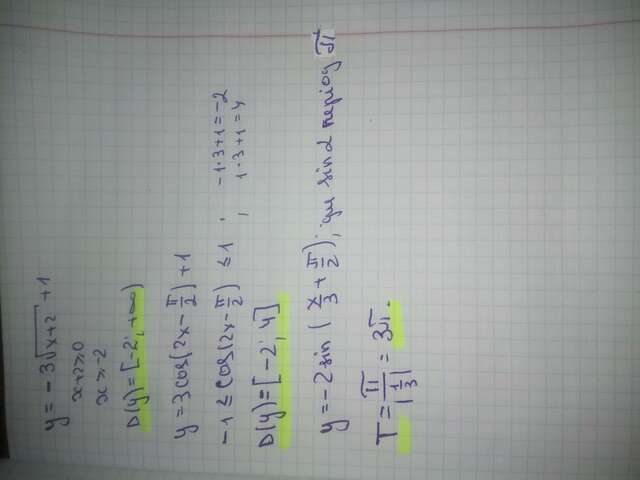 y = -3√x+2 + 1
x+2≥0
x≥-2
D(y)=[-2; +∞)
y = 3cos(2x - π/2) + 1
-1 ≤ cos(2x - π/2) ≤ 1 ; -1·3+1=-2
; 1·3+1=4
D(y)=[-2; 4]
y = -2 sin (x/3 + π/2); для sin α період π
T = π/|1/3| = 3π.